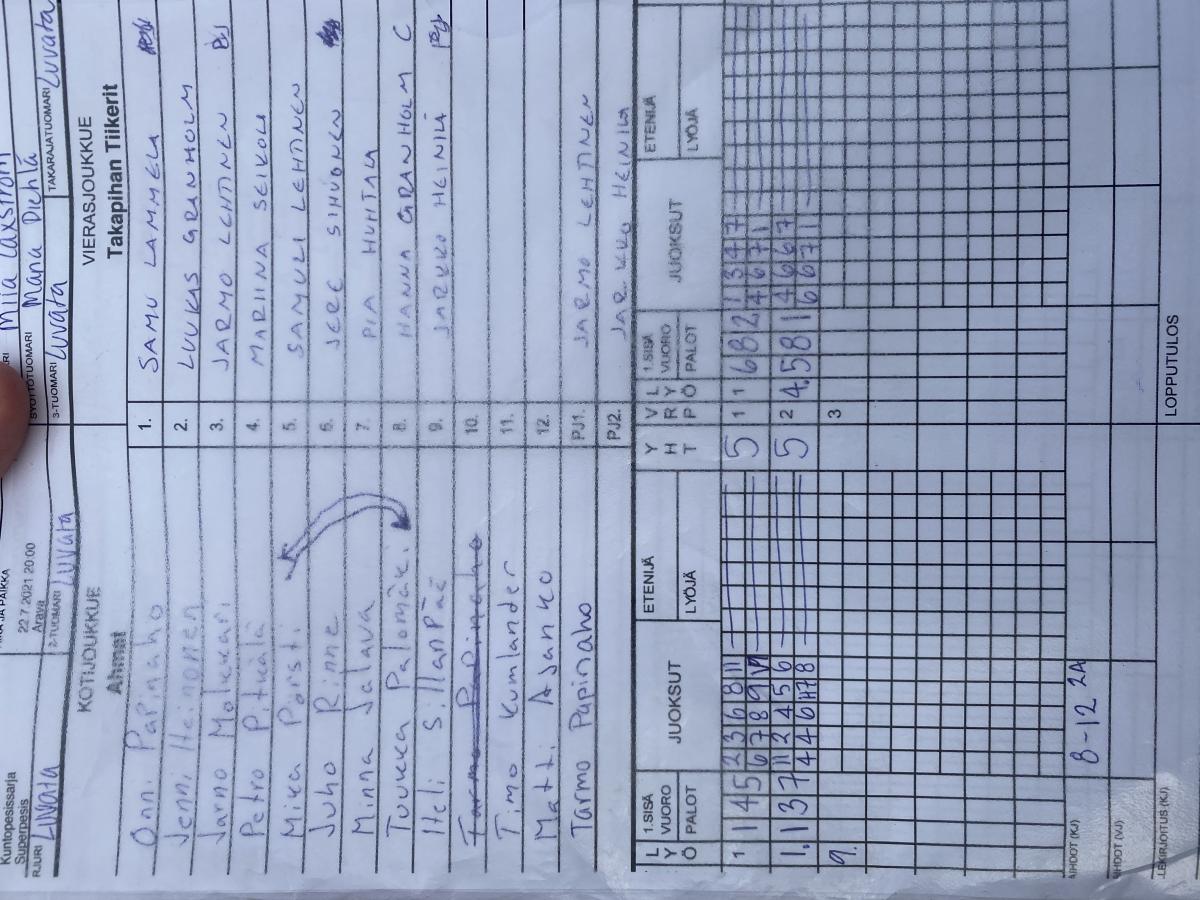 Kuntopesissarja
Superpesis
22.7.2021 20:00
Arava
Miia Laxström
SYÖTTÖTUOMARI Mana Diehlä
RJURI LUVATA 2-TUOMARI LUVATA 3-TUOMARI Luvata TAKARAJATUOMARI Luvata
KOTIJOUKKUE VIERASJOUKKUE
Ahmat Takapihan Tiikerit
Onni Papinaho 1. SAMU LAMMELA
Jenni Heinonen 2. LUUKAS GRANHOLM
Jarno Molukari 3. JARMO LEHTINEN
Petro Pitkälä 4. MARIINA SEIKOLI
Mika Porsti 5. SAMULI LEHTINEN
Juho Rinne 6. JERE SIHVONEN
Minna Jalava 7. PIA HUHTALA
Tuukka Palomäki 8. HANNA GRANHOLM C
Heli Sillanpää 9. JARKKO HEINILÄ
10.
Timo Kumlander 11.
Matti Asanko 12.
Tarmo Papinaho PJ1. JARMO LEHTINEN
PJ2. JARKKO HEINILÄ
LYÖ 1.SISÄ VUORO PALOT JUOKSUT ETENIJÄ LYÖJÄ YHT VRP LYÖ 1.SISÄ VUORO PALOT JUOKSUT ETENIJÄ LYÖJÄ
1 1 4 5 2 3 6 8 11 5 1 1 6 8 2 1 1 3 4 7
6 7 8 9 4 6 7 1
1. 1 3 7 11 2 4 5 6 5 2 4. 5 8 1 4 6 6 7
4 4 6 7 8 6 6 7 1
9. 3
AIHDOT (KJ) 8-12 2A
AIHDOT (VJ)
LEKIRJOITUS (KJ) LOPPUTULOS